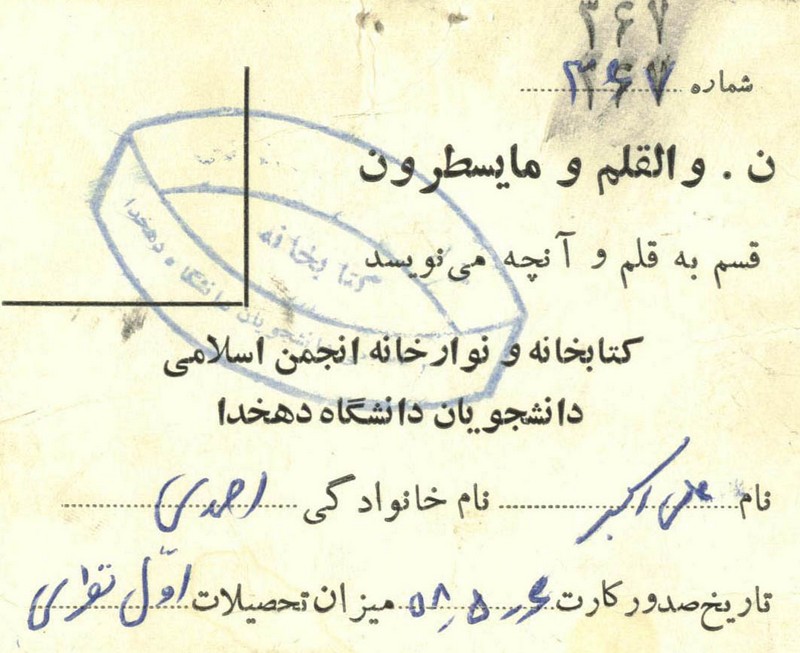 ۳۶۷
شماره ۳۶۷
ن . والقلم و مایسطرون
قسم به قلم و آنچه می‌نویسد
کتابخانه
کتابخانه و نوارخانه انجمن اسلامی
دانشجویان دانشگاه دهخدا
نام علی اکبر نام خانوادگی احمدی
تاریخ صدور کارت میزان تحصیلات اول